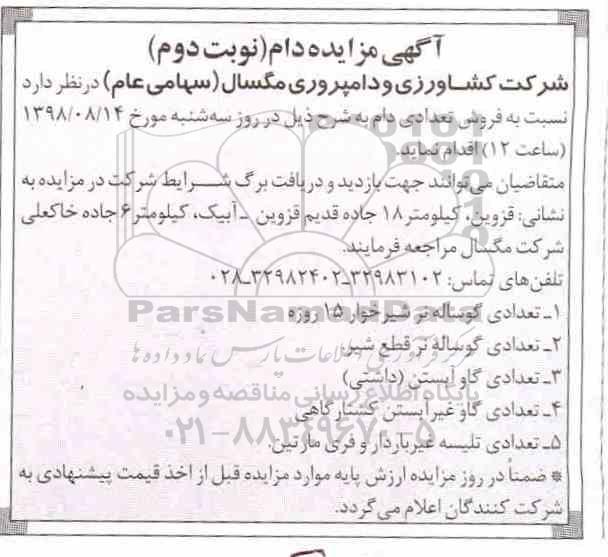 آگهی مزایده دام (نوبت دوم)
شرکت کشاورزی و دامپروری مگسال (سهامی عام) در نظر دارد
نسبت به فروش تعدادی دام به شرح ذیل در روز سه‌شنبه مورخ ۱۳۹۸/۰۸/۱۴
(ساعت ۱۲) اقدام نماید.
متقاضیان می‌توانند جهت بازدید و دریافت برگ شرایط شرکت در مزایده به
نشانی: قزوین، کیلومتر ۱۸ جاده قدیم قزوین ـ آبیک، کیلومتر ۶ جاده خاکعلی
شرکت مگسال مراجعه فرمایند.
تلفن‌های تماس: ۳۲۹۸۳۱۰۲ـ۳۲۹۸۲۴۰۲ـ۰۲۸
۱ـ تعدادی گوساله نر شیرخوار ۱۵ روزه
ParsNamadData
۲ـ تعدادی گوساله نر قطع شیر
مرکز فرآوری اطلاعات پارس نماد داده‌ها
۳ـ تعدادی گاو آبستن (داشتی)
پایگاه اطلاع رسانی مناقصه و مزایده
۴ـ تعدادی گاو غیرآبستن کشتارگاهی
۰۲۱-۸۸۳۴۹۶۷۰-۵
۵ـ تعدادی تلیسه غیرباردار و فری مارتین.
* ضمناً در روز مزایده ارزش پایه موارد مزایده قبل از اخذ قیمت پیشنهادی به
شرکت کنندگان اعلام می‌گردد.